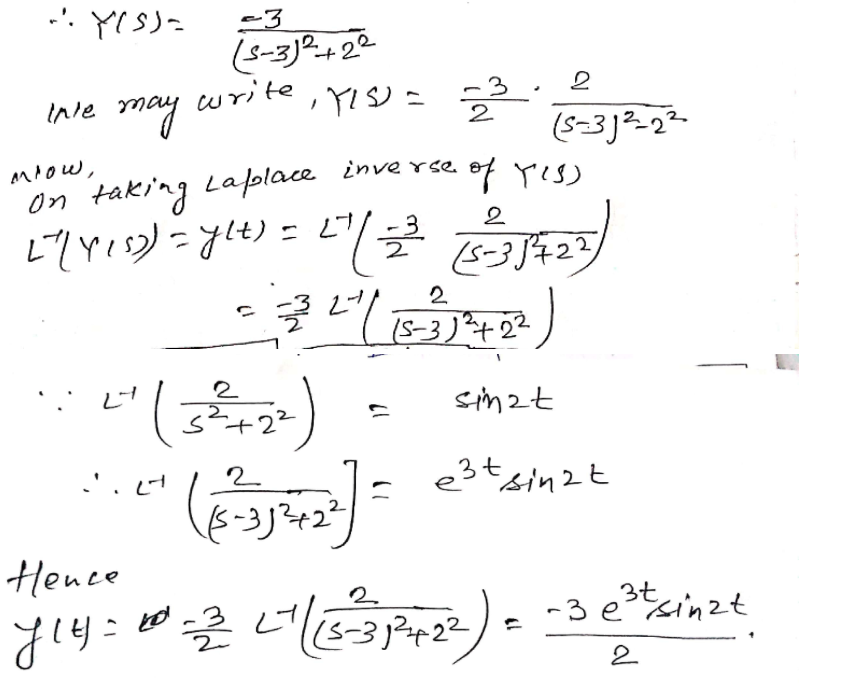 ∴ Y(S) = -3 / ((S-3)² + 2²)
We may write, Y(S) = -3/2 · 2 / ((S-3)² - 2²)
Now,
On taking Laplace inverse of Y(S)
L⁻¹(Y(S)) = y(t) = L⁻¹( -3/2 2 / ((S-3)² + 2²) )
= -3/2 L⁻¹( 2 / ((S-3)² + 2²) )
∵ L⁻¹( 2 / (S² + 2²) ) = sin2t
∴ L⁻¹( 2 / ((S-3)² + 2²) ] = e^3t sin2t
Hence
y(t) = -3/2 L⁻¹( 2 / ((S-3)² + 2²) ) = -3 e^3t sin2t / 2 .